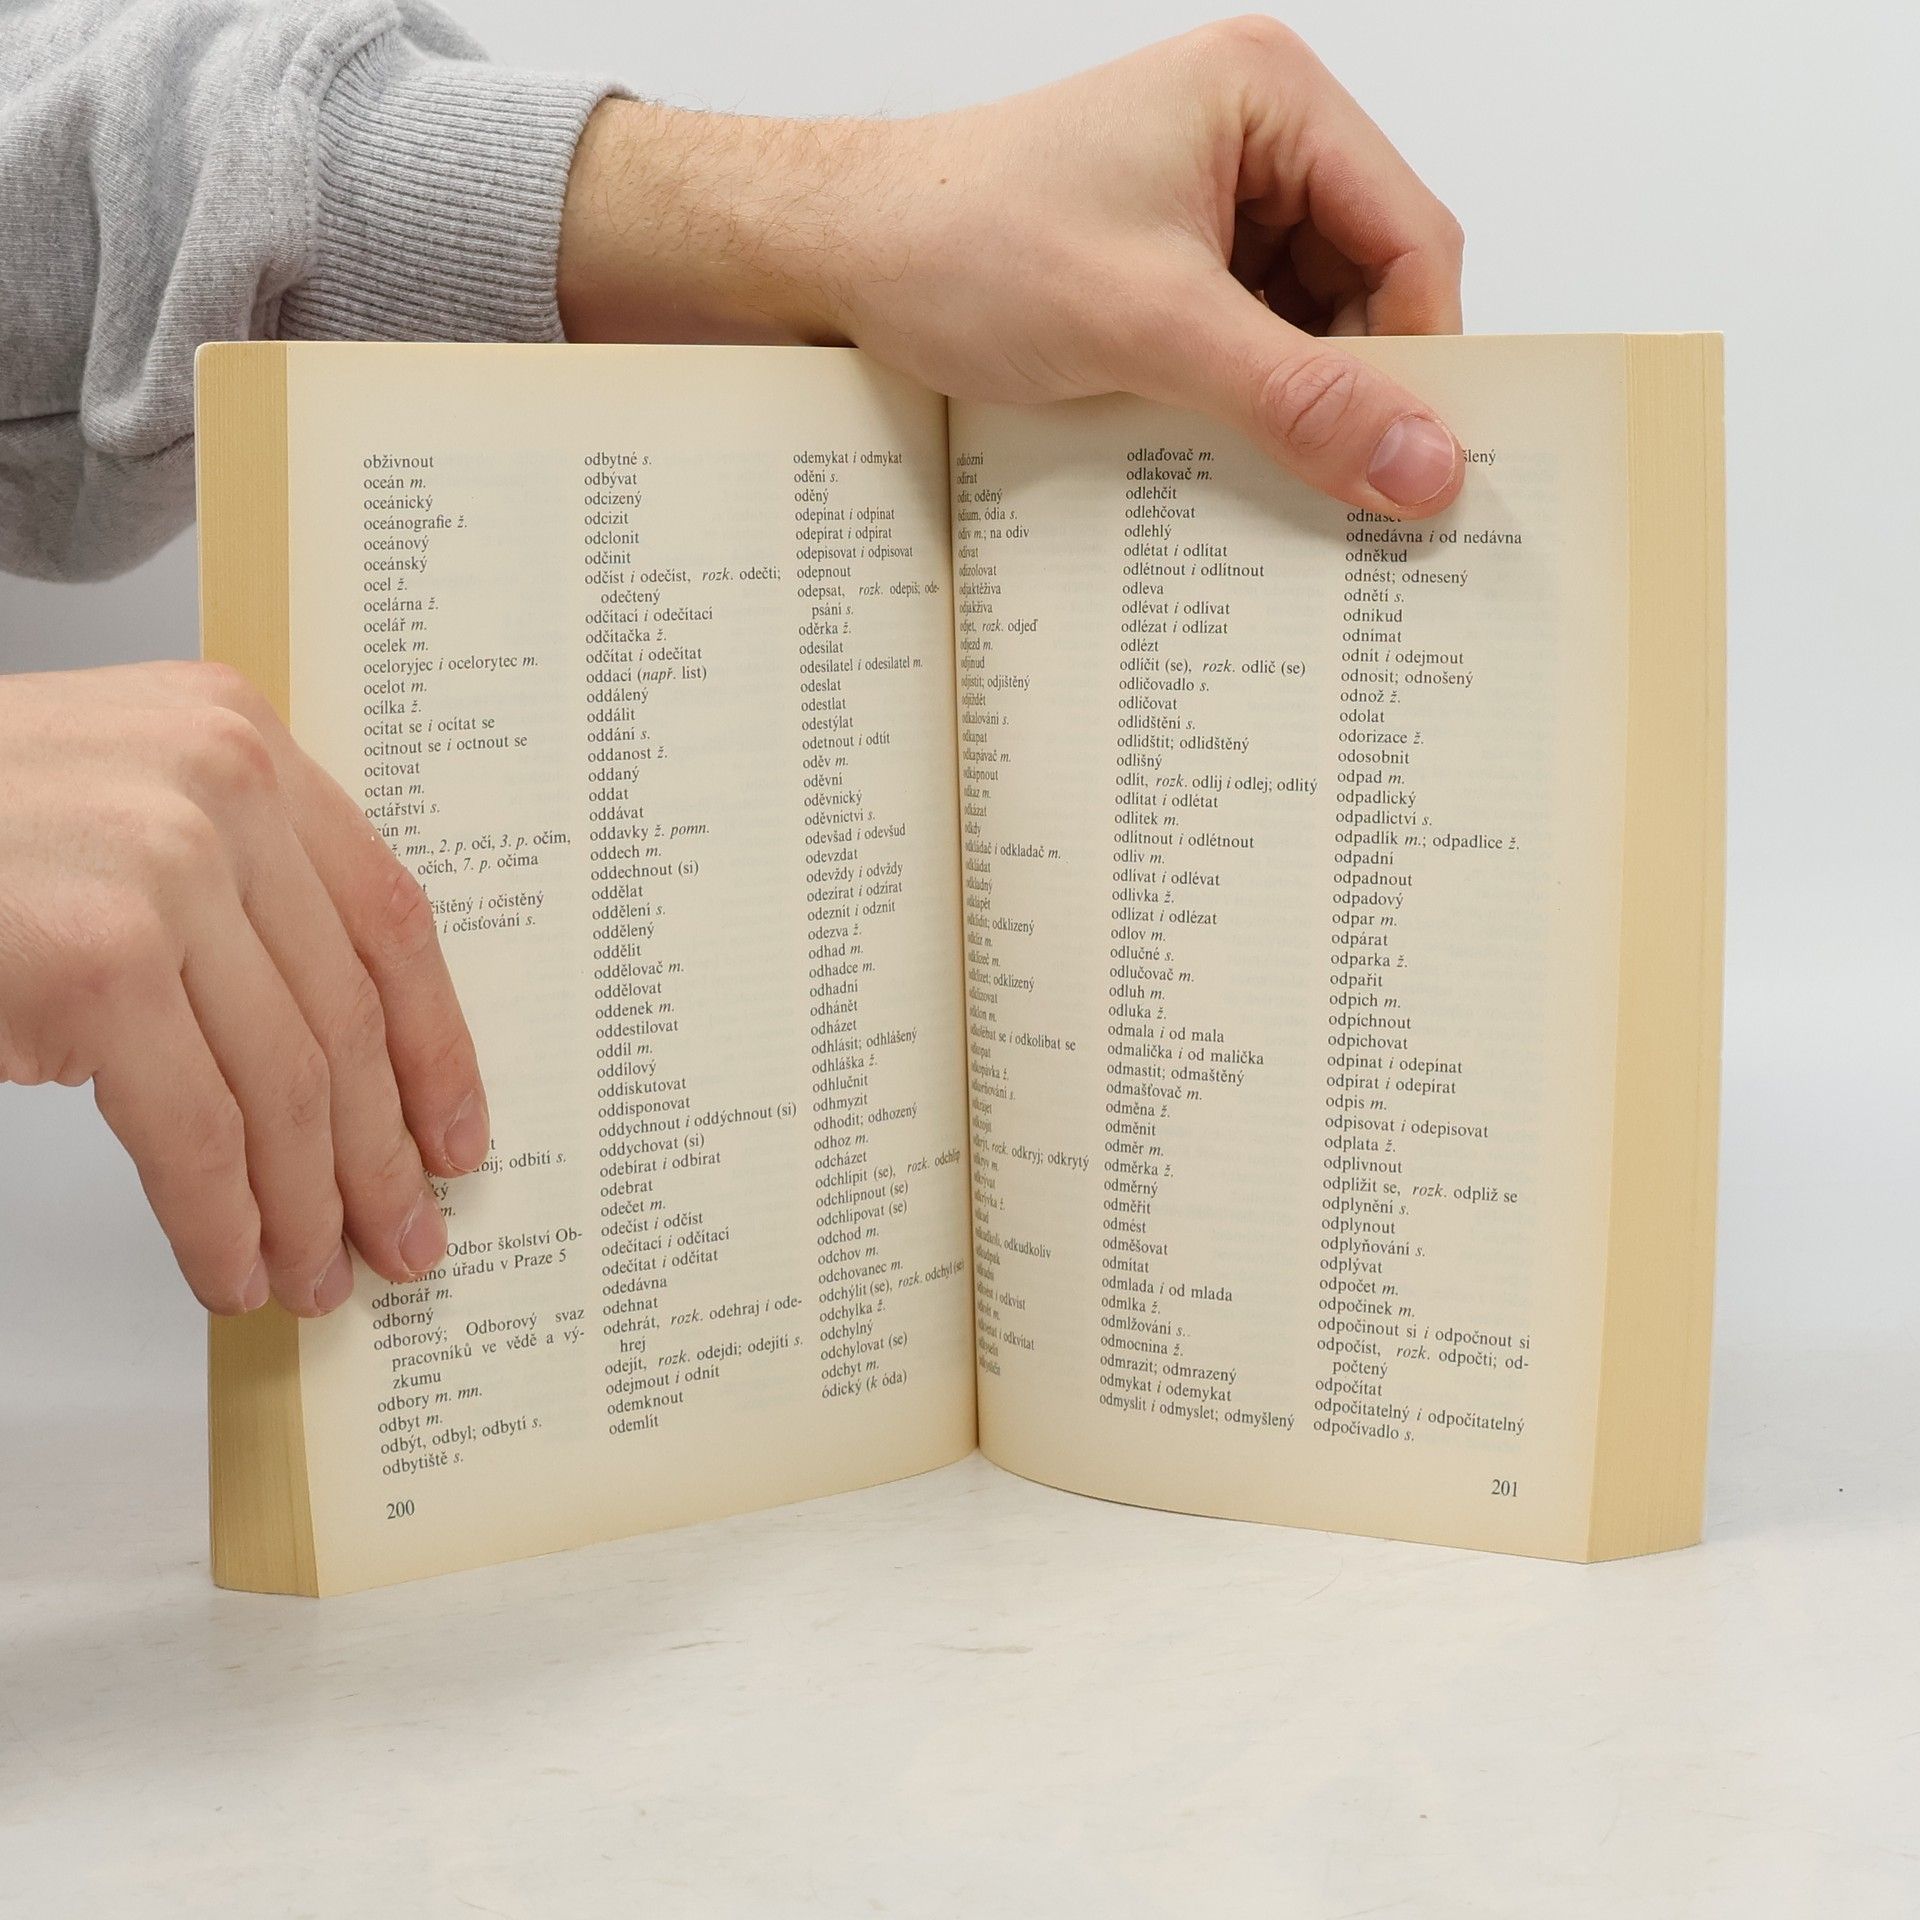 obživnout
oceán m.
oceánický
oceánografie ž.
oceánový
oceánský
ocel ž.
ocelárna ž.
ocelář m.
ocelek m.
oceloryjec i ocelorytec m.
ocelot m.
ocílka ž.
ocitat se i ocítat se
ocitnout se i octnout se
ocitovat
octan m.
octářství s.
ž. mn., 2. p. očí, 3. p. očím,
očích, 7. p. očima
i očistěný
i očisťování s.
odbití s.
m.
Odbor školství Ob-
úřadu v Praze 5
odborář m.
odborný
odborový; Odborový svaz
pracovníků ve vědě a vý-
zkumu
odbory m. mn.
odbyt m.
odbýt, odbyl; odbytí s.
odbytiště s.
200
odbytné s.
odbývat
odcizený
odcizit
odclonit
odčinit
odčíst i odečíst, rozk. odečti;
odečtený
odčítací i odečítací
odčítačka ž.
odčítat i odečítat
oddací (např. list)
oddálený
oddálit
oddání s.
oddanost ž.
oddaný
oddat
oddávat
oddavky ž. pomn.
oddech m.
oddechnout (si)
oddělat
oddělení s.
oddělený
oddělit
oddělovač m.
oddělovat
oddenek m.
oddestilovat
oddíl m.
oddílový
oddiskutovat
oddisponovat
oddychnout i oddýchnout (si)
oddychovat (si)
odebírat i odbírat
odebrat
odečet m.
odečíst i odčíst
odečítací i odčítací
odečítat i odčítat
odedávna
odehnat
odehrát, rozk. odehraj i ode-
hrej
odejít, rozk. odejdi; odejití s.
odejmout i odnít
odemknout
odemlít
odemykat i odmykat
odění s.
oděný
odepínat i odpínat
odepírat i odpírat
odepisovat i odpisovat
odepnout
odepsat, rozk. odepiš; ode-
psání s.
oděrka ž.
odesílat
odesílatel i odesilatel m.
odeslat
odestlat
odestýlat
odetnout i odtít
oděv m.
oděvní
oděvnický
oděvnictví s.
odevšad i odevšud
odevzdat
odevždy i odvždy
odezírat i odzírat
odeznít i odznít
odezva ž.
odhad m.
odhadce m.
odhadní
odhánět
odházet
odhlásit; odhlášený
odhláška ž.
odhlučnit
odhmyzit
odhodit; odhozený
odhoz m.
odcházet
odchlípit (se), rozk. odchlip
odchlípnout (se)
odchlipovat (se)
odchod m.
odchov m.
odchovanec m.
odchýlit (se), rozk. odchyl (se)
odchylka ž.
odchylný
odchylovat (se)
odchyt m.
ódický (k óda)
odiózní
odírat
odít; oděný
ódium, ódia s.
odiv m.; na odiv
odívat
odizolovat
odjaktěživa
odjakživa
odjet, rozk. odjeď
odjezd m.
odjinud
odjistit; odjištěný
odjíždět
odkalování s.
odkapat
odkapávač m.
odkápnout
odkaz m.
odkázat
odkdy
odkládač i odkladač m.
odkládat
odkladný
odklepět
odklidit; odklizený
odkliz m.
odklízeč m.
odklízet; odklizený
odklizovat
odklon m.
odkolébat se i odkolíbat se
odkopat
odkopávka ž.
odkrájet
odkrojit
odkrýt, rozk. odkryj; odkrytý
odkryv m.
odkrývat
odkrývka ž.
odkud
odkudkoli, odkudkoliv
odkudpak
odkvést i odkvist
odkvět m.
odkvétat i odkvítat
odlaďovač m.
odlakovač m.
odlehčit
odlehčovat
odlehlý
odlétat i odlítat
odlétnout i odlítnout
odleva
odlévat i odlívat
odlézat i odlízat
odlézt
odlíčit (se), rozk. odlič (se)
odličovadlo s.
odličovat
odlidštění s.
odlidštit; odlidštěný
odlišný
odlít, rozk. odlij i odlej; odlitý
odlítat i odlétat
odlitek m.
odlítnout i odlétnout
odliv m.
odlívat i odlévat
odlivka ž.
odlízat i odlézat
odlov m.
odlučné s.
odlučovač m.
odluh m.
odluka ž.
odmala i od mala
odmalička i od malička
odmastit; odmaštěný
odmašťovač m.
odměna ž.
odměnit
odměr m.
odměrka ž.
odměrný
odměřit
odmést
odměšovat
odmítat
odmlada i od mlada
odmlka ž.
odmlžování s.
odmocnina ž.
odmrazit; odmrazený
odmykat i odemykat
odmyslit i odmyslet; odmyšlený
šlený
odnášet
odnedávna i od nedávna
odněkud
odnést; odnesený
odnětí s.
odnikud
odnímat
odnít i odejmout
odnosit; odnošený
odnož ž.
odolat
odorizace ž.
odosobnit
odpad m.
odpadlický
odpadlictví s.
odpadlík m.; odpadlice ž.
odpadní
odpadnout
odpadový
odpar m.
odpárat
odparka ž.
odpařit
odpich m.
odpíchnout
odpichovat
odpínat i odepínat
odpírat i odepírat
odpis m.
odpisovat i odepisovat
odplata ž.
odplivnout
odplížit se, rozk. odpliž se
odplynění s.
odplynout
odplyňování s.
odplývat
odpočet m.
odpočinek m.
odpočinout si i odpočnout si
odpočíst, rozk. odpočti; od-
počtený
odpočítat
odpočitatelný i odpočítatelný
odpočívadlo s.
201